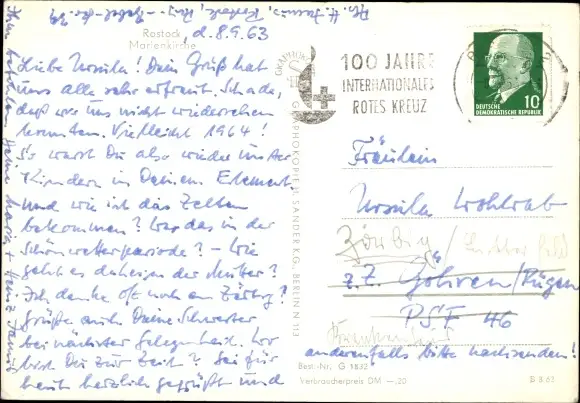 Rostock
Marienkirche
d. 8.9.63
Liebe Ursula! Dein Gruß hat
uns alle sehr erfreut. Schade,
daß wir uns nicht wiedersehen
konnten. Vielleicht 1964!
So warst Du also wieder unter
Kindern in Deinem Element.
Und wie ist das Zelten
bekommen? War das in der
Schönwetterperiode? – Wie
geht es daheim der Mutter?
Ich denke oft noch an Zörbig?
Grüße auch Deine Schwester
bei nächster Gelegenheit. Wo
bist Du zur Zeit? Sei für
heute herzlich gegrüßt und
100 JAHRE
INTERNATIONALES
ROTES KREUZ
DEUTSCHE
DEMOKRATISCHE REPUBLIK
10
Fräulein
Ursula Wohlrab
Zörbig /
z.Z. Göhren/Rügen
PSF 46
Krankenhaus
anderenfalls bitte nachsenden!
GRAPHOKOPIE H. SANDER K.G., BERLIN N 113
Best.-Nr. G 1832
Verbraucherpreis DM —,20
B 8 63